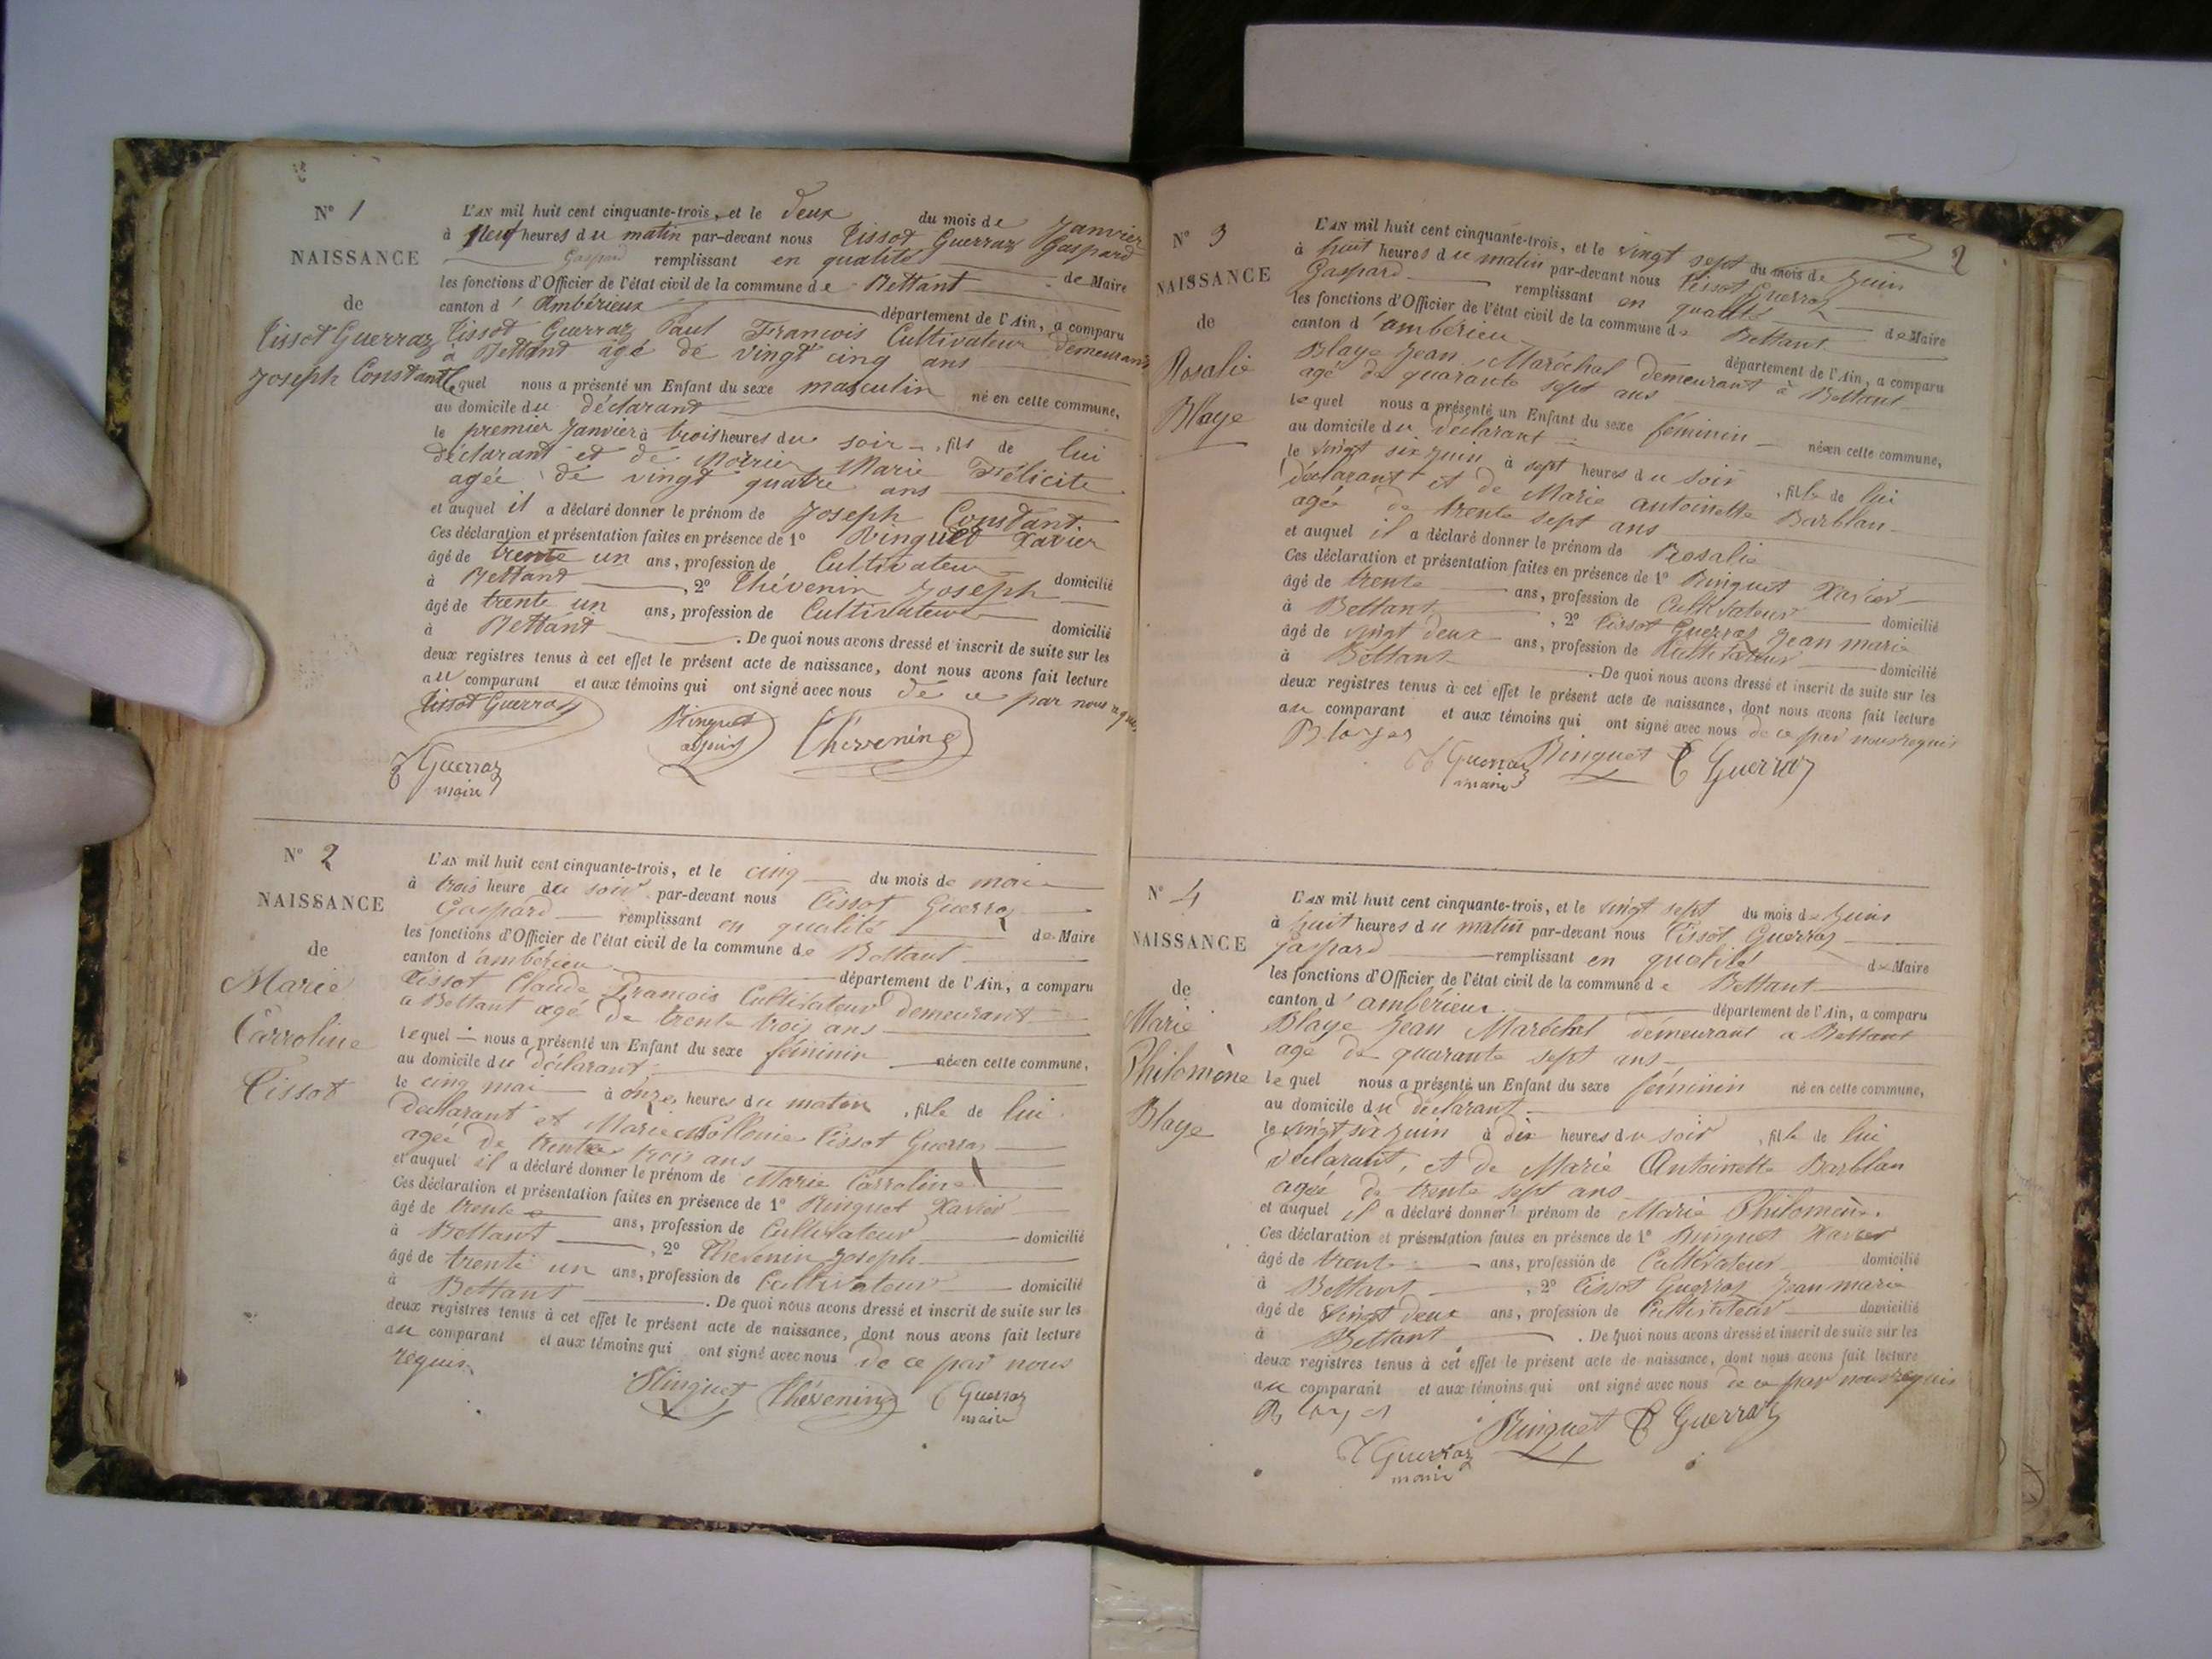 N° 1
NAISSANCE
de
Tissot Guerraz
Joseph Constant
L'AN mil huit cent cinquante-trois, et le deux du mois de Janvier
à neuf heures du matin par-devant nous Tissot Guerraz Gaspard
Gaspard remplissant en qualité
les fonctions d'Officier de l'état civil de la commune de Bettant de Maire
canton d'Ambérieux département de l'Ain, a comparu
Tissot Guerraz Paul François Cultivateur demeurant
à Bettant âgé de vingt cinq ans
lequel nous a présenté un Enfant du sexe masculin né en cette commune,
au domicile du déclarant
le premier Janvier à trois heures du soir, fils de lui
déclarant et de Marie Félicite
agée de vingt quatre ans
et auquel il a déclaré donner le prénom de Joseph Constant.
Ces déclaration et présentation faites en présence de 1° Ringuet Xavier
âgé de trente un ans, profession de Cultivateur domicilié
à Bettant, 2° Thévenin Joseph
âgé de trente un ans, profession de Cultivateur domicilié
à Bettant. De quoi nous avons dressé et inscrit de suite sur les
deux registres tenus à cet effet le présent acte de naissance, dont nous avons fait lecture
au comparant et aux témoins qui ont signé avec nous de ce par nous requis
Tissot Guerraz Ringuet Thévenin
T Guerraz
maire
N° 2
NAISSANCE
de
Marie
Carroline
Tissot
L'AN mil huit cent cinquante-trois, et le cinq du mois de mai
à trois heure du soir par-devant nous Tissot Guerraz
Gaspard remplissant en qualité
les fonctions d'Officier de l'état civil de la commune de Bettant de Maire
canton d'ambérieu département de l'Ain, a comparu
Tissot Claude François Cultivateur demeurant
a Bettant agé de trente trois ans
lequel nous a présenté un Enfant du sexe féminin née en cette commune,
au domicile du déclarant
le cinq mai à onze heures du matin, fille de lui
déclarant et Marie Tissot Guerraz
agée de trente trois ans
et auquel il a déclaré donner le prénom de Marie Carroline
Ces déclaration et présentation faites en présence de 1° Ringuet Xavier
âgé de trente ans, profession de Cultivateur domicilié
à Bettant, 2° Thevenin Joseph
âgé de trente un ans, profession de Cultivateur domicilié
à Bettant. De quoi nous avons dressé et inscrit de suite sur les
deux registres tenus à cet effet le présent acte de naissance, dont nous avons fait lecture
au comparant et aux témoins qui ont signé avec nous de ce par nous
requis
Ringuet Thévenin T Guerraz
maire
2
N° 3
NAISSANCE
de
Rosalie
Blaye
L'AN mil huit cent cinquante-trois, et le vingt sept du mois de Juin
à huit heures du matin par-devant nous Tissot Guerraz
Gaspard remplissant en qualité
les fonctions d'Officier de l'état civil de la commune de Bettant de Maire
canton d'ambérieu département de l'Ain, a comparu
Blaye Jean Maréchal demeurant à Bettant
agé de quarante sept ans
lequel nous a présenté un Enfant du sexe féminin née en cette commune,
au domicile du déclarant
le vingt six juin à sept heures du soir, fille de lui
déclarant et de Marie antoinette Barblan
agée de trente sept ans
et auquel il a déclaré donner le prénom de Rosalie
Ces déclaration et présentation faites en présence de 1° Ringuet Xavier
âgé de trente ans, profession de Cultivateur domicilié
à Bettant, 2° Tissot Guerraz Jean marie
âgé de vingt deux ans, profession de Cultivateur domicilié
à Bettant. De quoi nous avons dressé et inscrit de suite sur les
deux registres tenus à cet effet le présent acte de naissance, dont nous avons fait lecture
au comparant et aux témoins qui ont signé avec nous de ce par nous requis
T Guerraz Ringuet T Guerraz
maire
N° 4
NAISSANCE
de
Marie
Philomène
Blaye
L'AN mil huit cent cinquante-trois, et le vingt sept du mois de Juin
à huit heures du matin par-devant nous Tissot Guerraz
Gaspard remplissant en qualité de Maire
les fonctions d'Officier de l'état civil de la commune de Bettant
canton d'ambérieu département de l'Ain, a comparu
Blaye Jean Maréchal demeurant a Bettant
agé de quarante sept ans
lequel nous a présenté un Enfant du sexe féminin né en cette commune,
au domicile du déclarant
le vingt six juin à dix heures du soir, fille de lui
déclarant, et de Marie Antoinette Barblan
agée de trente sept ans
et auquel il a déclaré donner prénom de Marie Philomène.
Ces déclaration et présentation faites en présence de 1° Ringuet Xavier
âgé de trente ans, profession de Cultivateur domicilié
à Bettant, 2° Tissot Guerraz Jean marie
âgé de vingt deux ans, profession de Cultivateur domicilié
à Bettant. De quoi nous avons dressé et inscrit de suite sur les
deux registres tenus à cet effet le présent acte de naissance, dont nous avons fait lecture
au comparant et aux témoins qui ont signé avec nous de ce par nous requis
Ringuet T Guerraz
T Guerraz
maire